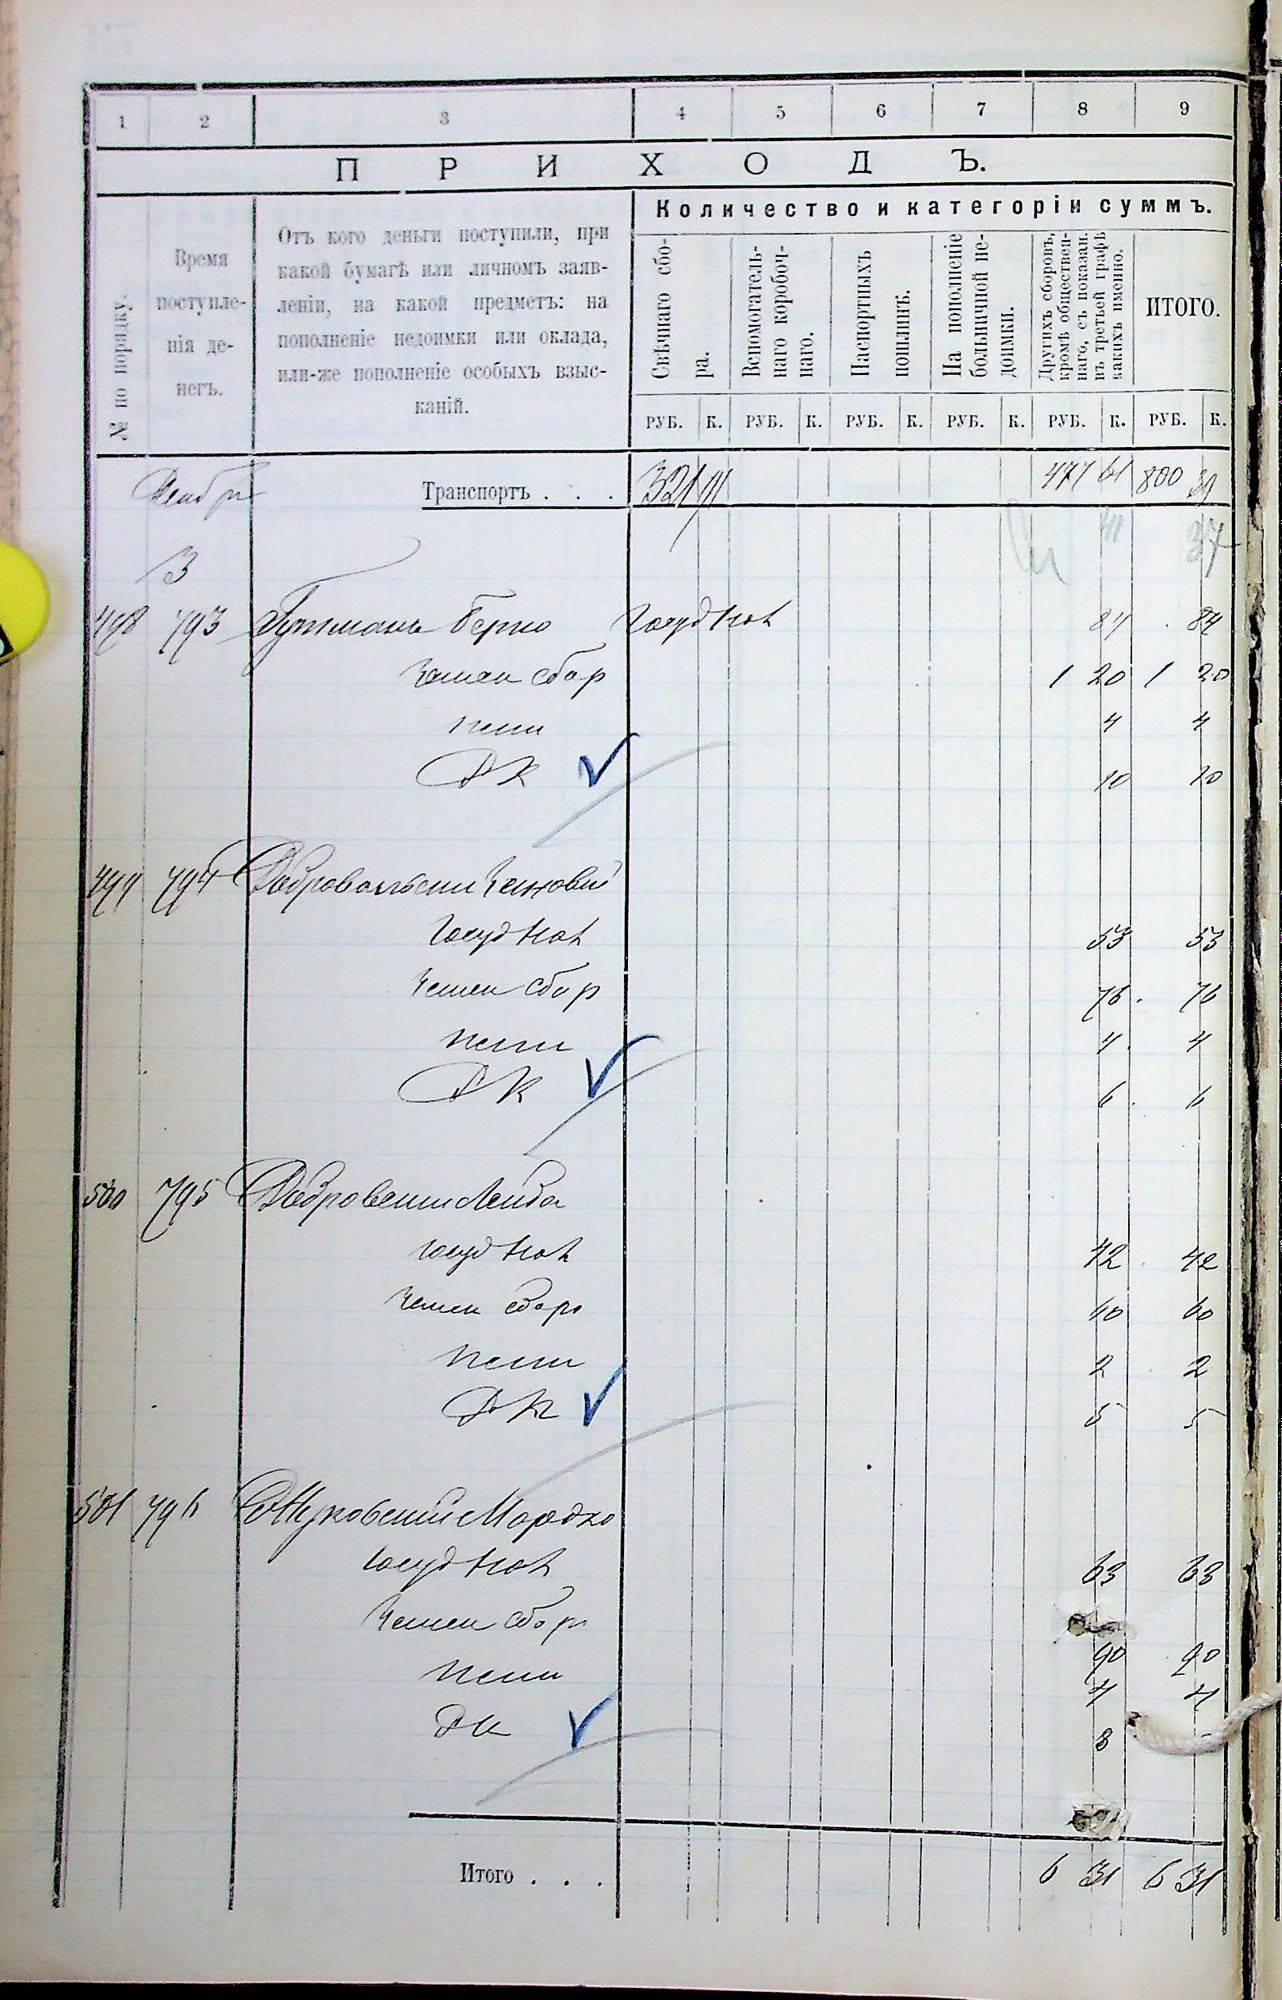 1 2 3 4 5 6 7 8 9
ПРИХОДЪ.
Количество и категоріи суммъ.
№ по порядку.
Время
поступле-
нія де-
негъ.
Отъ кого деньги поступили, при
какой бумагѣ или личномъ заяв-
леніи, на какой предметъ: на
пополненіе недоимки или оклада,
или-же пополненіе особыхъ взыс-
каній.
Свѣчнаго сбо-
ра.
Вспомогатель-
наго коробоч-
наго.
Паспортныхъ
пошлинъ.
На пополненіе
больничной не-
доимки.
Другихъ сборовъ,
кромѣ обществен-
наго, съ показан.
въ третьей графѣ
какихъ именно.
ИТОГО.
РУБ. К. РУБ. К. РУБ. К. РУБ. К. РУБ. К. РУБ. К.
Транспортъ . . . 321 477 61 800
3
498 793 Гутманъ Берко Госуд Нал 84 84
Земск сбор 1 20 1 20
пени 4 4
ДК 10 10
499 794 Добровольски Зельковий
Госуд Нал 53 53
Земск сбор 76 76
пени 4 4
ДК 6 6
500 795 Добровски Лейба
Госуд Нал 42 42
Земск сборо 60 60
пени 2 2
ДК 5 5
501 796 Жуковский Мордко
Госуд Нал 63 63
Земск сбор
90 90
пени 4 4
ДК 8
Итого . . . 6 31 6 31